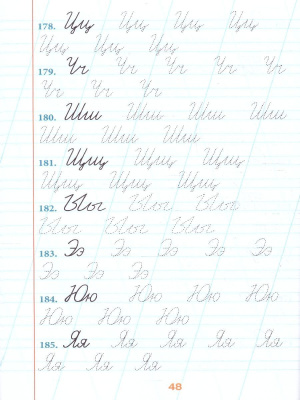 178. Цц Цц Цц Цц
Цц Цц Цц
179. Чч Чч Чч Чч Чч
Чч Чч Чч
180. Шш Шш Шш Шш
Шш Шш Шш
181. Щщ Щщ Щщ
Щщ Щщ Щщ
182. Ыы Ыы Ыы
Ыы Ыы Ыы
183. Ээ Ээ Ээ Ээ Ээ
Ээ Ээ Ээ
184. Юю Юю Юю Юю
Юю Юю Юю
185. Яя Яя Яя Яя Яя
Яя Яя Яя
48